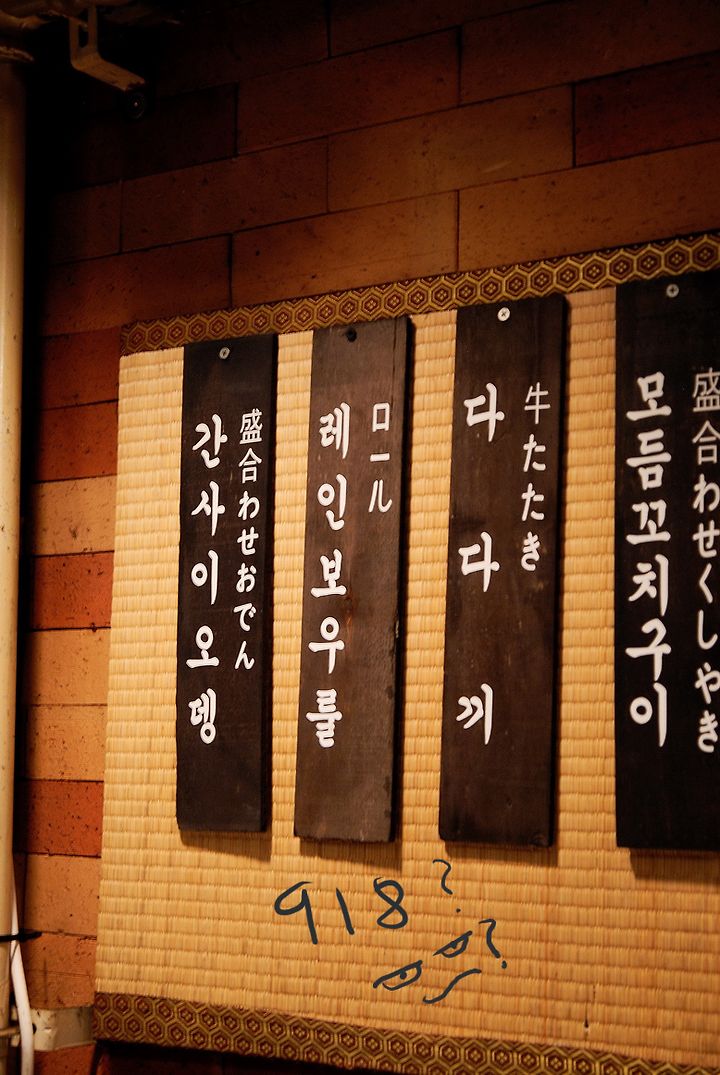 간사이오뎅
盛合わせおでん
레인보우를
ロール
다다끼
牛たたき
모듬꼬치구이
盛合わせくしやき
918?
?